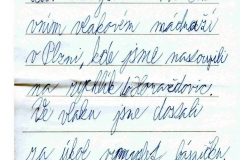 vním vlakovém nádraží
v Plzni, kde jsme nastoupili
na rychlík do Horažďovic.
Ve vlaku jsme dostali
za úkol vymyslet básničku